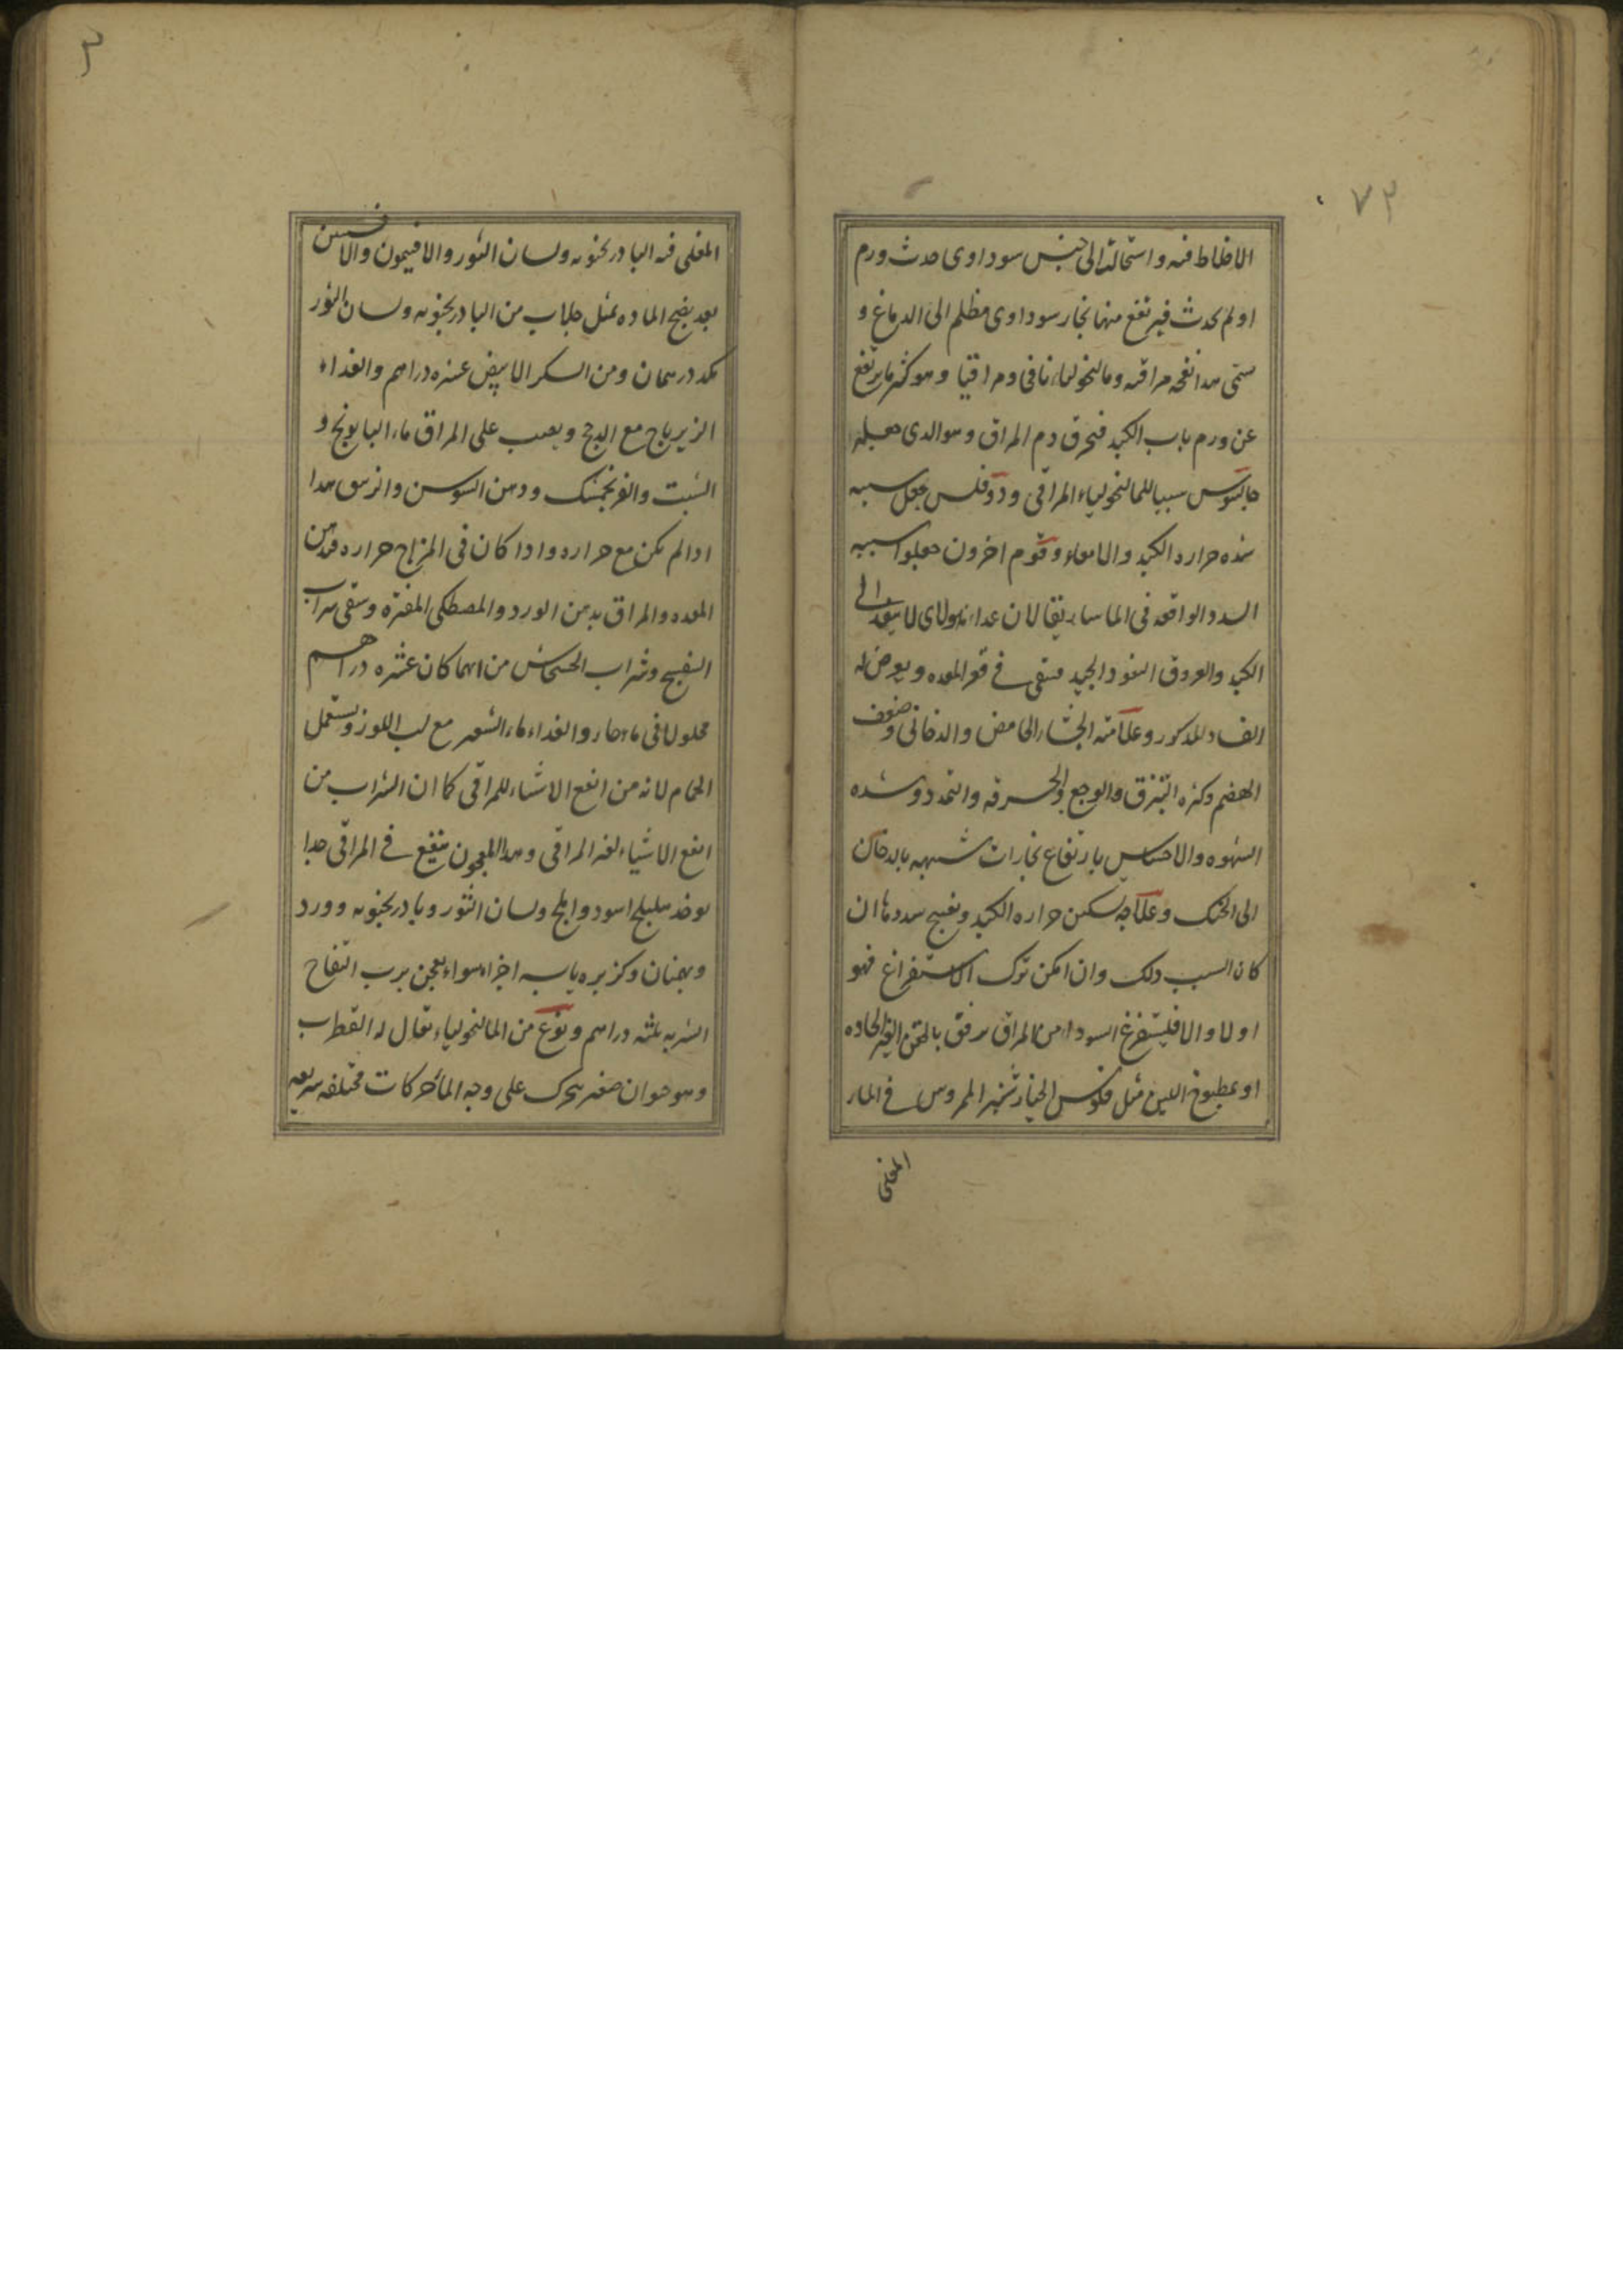 ٧٢
الاخلاط فيه واستحالتها الى جنس سوداوى حدث ورم
او لم يحدث فيرتفع منها بخار سوداوى مظلم الى الدماغ و
سمى هدا نفخه مراقيه ومالنخوليا نافخى ومراقيا وهو كثيرا ما يرتفع
عن ورم باب الكبد فيحرق دم المراق وهو الدى جعله
جالينوس سببا للمالنخولياء المراقى ودوفلس جعل سببه
شده حراره الكبد والامعاء وقوم اخرون جعلوا سببه
السدد الواقعه فى الماساريقا لان غداء هولاى لا ينفد الى
الكبد والعروق النفود الجيد فيبقى فى قعر المعده ويعرض له
الفساد المدكور وعلامته الجشاء الحامض والدخانى وضعف
الهضم وكثره التبزق والوجع والحرقه والتمدد وشده
الشهوه والاحساس بارتفاع بخارات شبيهه بالدخان
الى الحنك وعلاجه تسكين حراره الكبد وتفتيح سددها ان
كان السبب دلك وان امكن ترك الاستفراغ فهو
اولا والا فليستفرغ السوداء من المراق برفق بالحقن الغير الحاده
او بمطبوخ اللين مثل فلوس الخيارشنبر الممروس فى الماء
المغلى
٣
المغلى فيه البادرنجنويه ولسان الثور والافتيمون والافسنتين
بعد نضج الماده بمثل جلاب من البادرنجنويه ولسان الثور
درهمان ومن السكر الابيض عشره دراهم والغداء
الزيرباج مع الدجج ويصب على المراق ماء البابونج و
الشبت والفرنجمشك ودهن السوسن والنرجس هدا
ادا لم يكن مع حراره وادا كان فى المزاج حراره فدهن
المعده والمراق بدهن الورد والمصطكى المفتره وسقى شراب
البنفسج وشراب الخشخاش من ايهما كان عشره دراهم
محلولا فى ماء حار والغداء ماء الشعير مع لب اللوز ويستعمل
الحمام لانه من انفع الاشياء للمراقى كما ان الشراب من
انفع الاشياء لغير المراقى وهدا المعجون ينفع فى المراقى جدا
يوخد هليلج اسود واملج ولسان الثور وبادرنجنويه وورد
وبهمنان وكزبره يابسه اجزاء سواء يعجن برب التفاح
الشربه ثلثه دراهم ونوع من المالنخولياء يقال له القطرب
وهو حيوان صغير يتحرك على وجه الماء حركات مختلفه سريعه